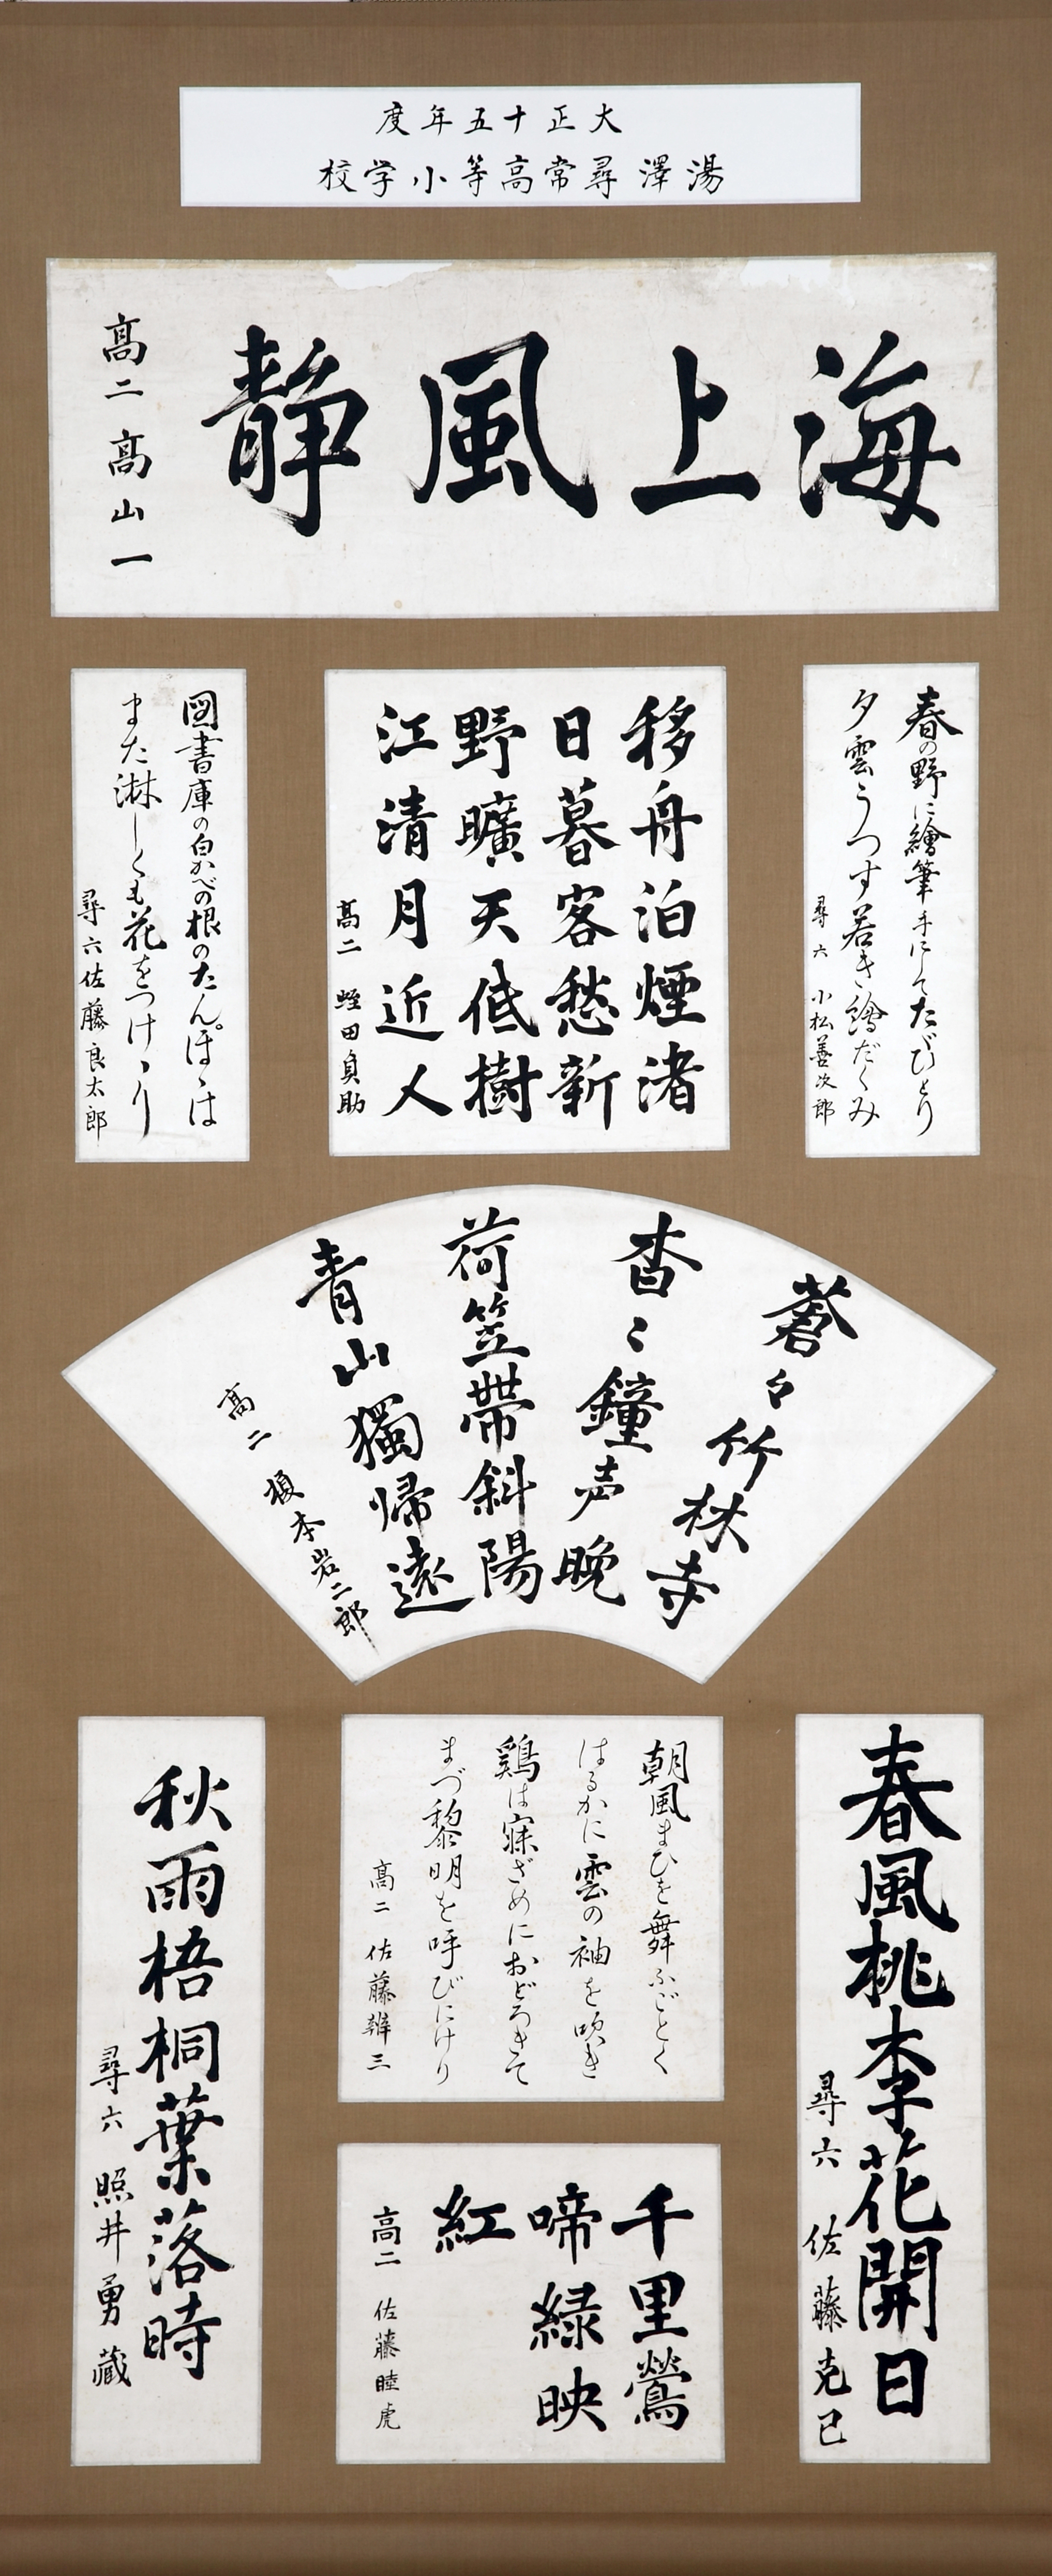 大正十五年度
湯澤尋常高等小学校
海上風静
高二 高山一
春の野に繪筆手にしてたゞひとり
夕雲うつす若き繪だくみ
尋六 小松善次郎
移舟泊煙渚
日暮客愁新
野曠天低樹
江清月近人
高二 蛭田貞助
図書庫の白かべの根のたんぽゝは
また淋しくも花をつけゝり
尋六 佐藤良太郎
蒼々竹林寺
杳々鐘声晩
荷笠帯斜陽
青山獨歸遠
高二 榎本岩二郎
春風桃李花開日
尋六 佐藤克己
朝風まひを舞ふごとく
はるかに雲の袖を吹き
鶏は寐ざめにおどろきて
まづ黎明を呼びにけり
高二 佐藤雄三
千里鶯
啼緑映
紅
高二 佐藤睦虎
秋雨梧桐葉落時
尋六 照井勇蔵